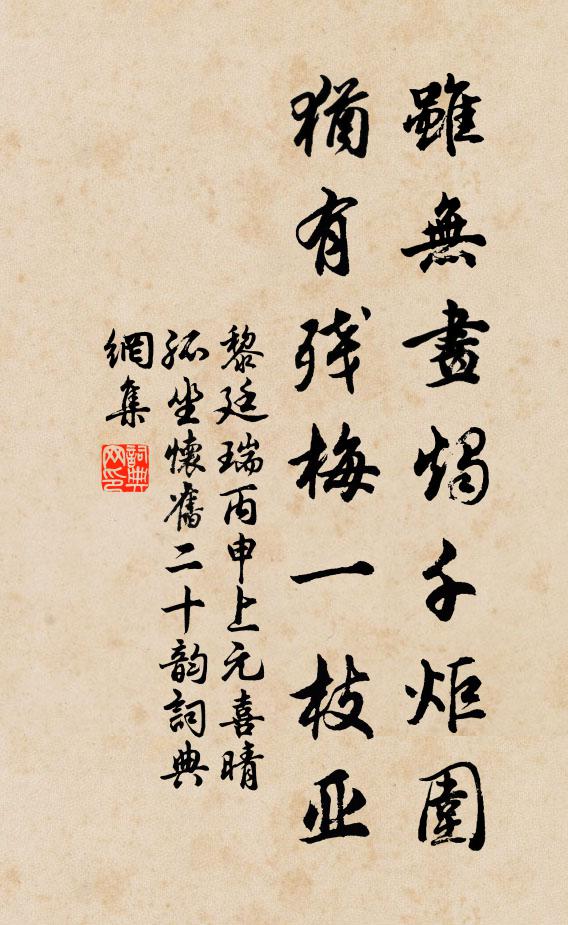 雖無畫燭千炬圍
猶有残梅一枝亚
黎廷瑞丙申上元喜晴
孤坐懷舊二十韵詞典
網集
詞典网印